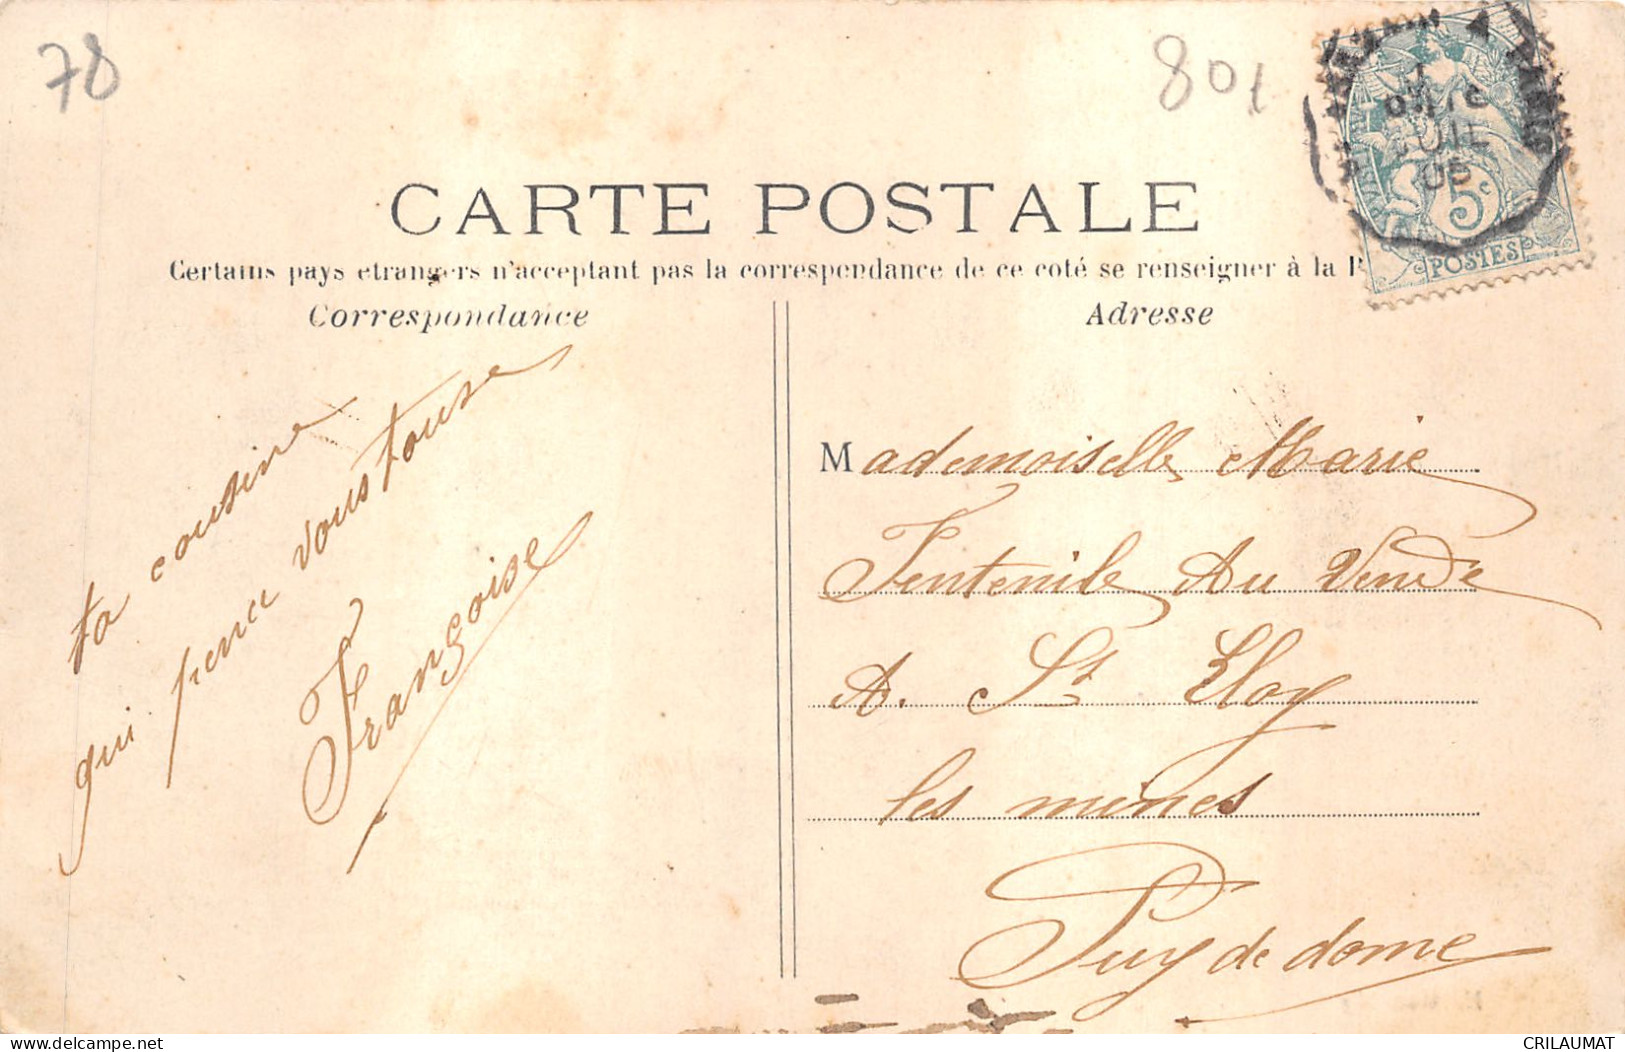 78
801
CARTE POSTALE
Certains pays etrangers n'acceptant pas la correspondance de ce coté se renseigner à la P
Correspondance
Adresse
5c
POSTES
JUIL
05
ta cousine
qui pence vous touse
Françoise
Mademoiselle Marie
Fentenile Au Vendé
A. St Eloy
les mines
Puy de dome
delcampe.net
CRILAUMAT